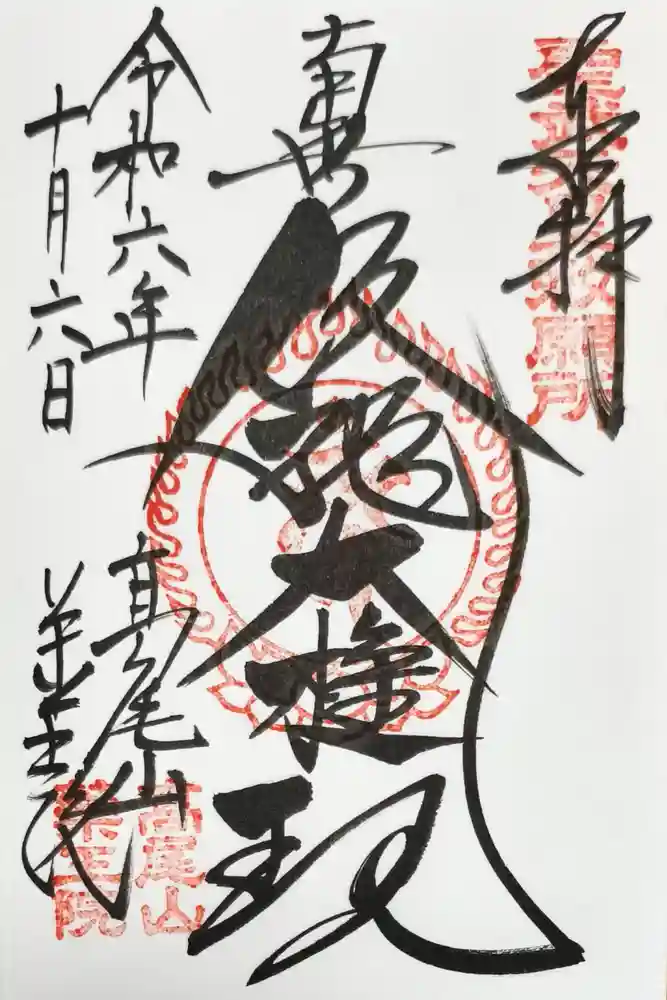 奉拝
願所
南無飯縄大権現
令和六年
十月六日
高尾山
薬王院
高尾山
薬王院